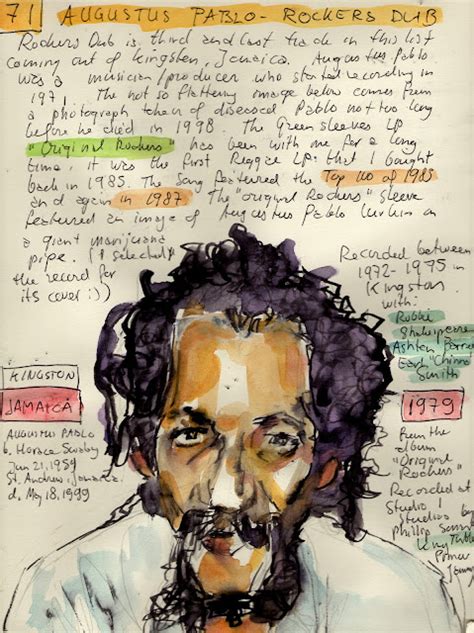 71 AUGUSTUS PABLO - ROCKERS DUB
Rockers Dub is third and last track in this list
coming out of Kingston, Jamaica. Augustus Pablo
was a musician/producer who started recording in
1971. The not so flattering image below comes from
a photograph taken of diseased Pablo not too long
before he died in 1998. The Greensleeves LP
"Original Rockers" has been with me for a long
time, it was the first Reggae LP that I bought
back in 1985. The song featured the Top 100 of 1985
and again in 1987 The "original Rockers" sleeve
featured an image of Augustus Pablo lurkin on
a giant marijuana
pipe. (I selected
the record for
its cover :))
Recorded between
1972-1975 in
Kingston
with:
Robbie
Shakespeare
Ashton Barrett
Earl "Chinna"
Smith
KINGSTON
JAMAICA
AUGUSTUS PABLO
b. Horace Swaby
Jun 21, 1954
St. Andrew, Jamaica
d. May 18, 1999
1979
from the
album
"Original
Rockers"
Recorded at
Studio 1
Studios by
Phillip
King Tubby